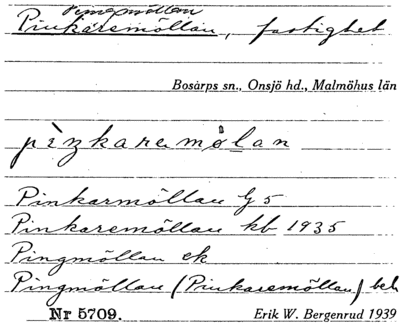 Pingmöllan
Pinkaremöllan, fastighet
Bosarps sn., Onsjö hd., Malmöhus län
Pinkarmöllan G5
Pinkaremöllan kb 1935
Pingmöllan ek
Pingmöllan (Pinkaremöllan) beb
Nr 5709. Erik W. Bergenrud 1939